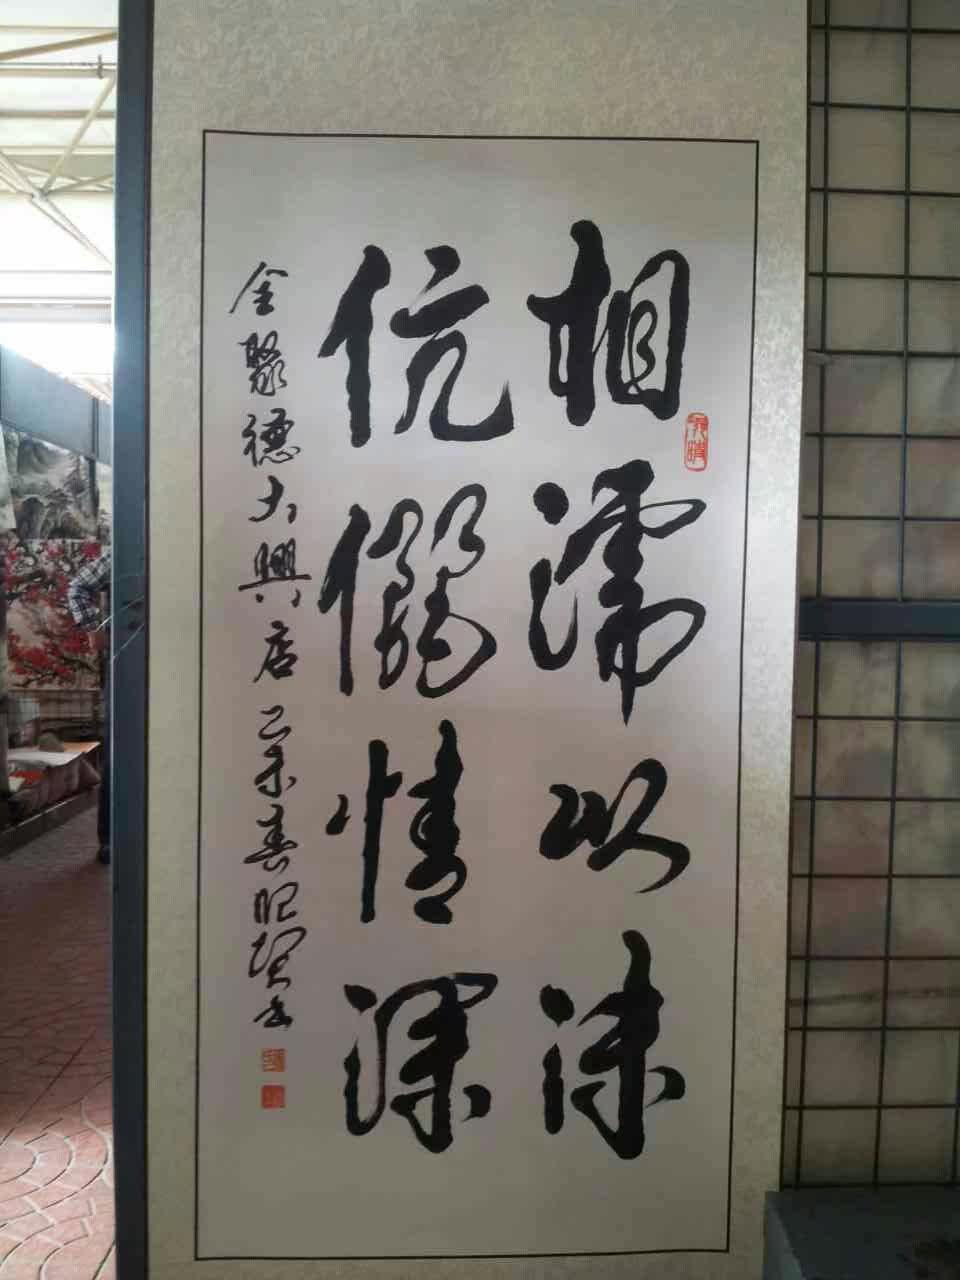 相濡以沫
伉儷情深
金聚德大興店 乙未春月